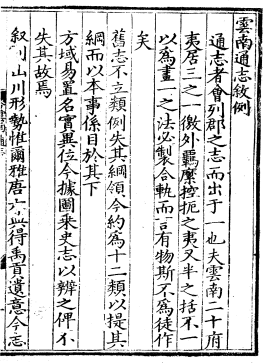 雲南通志敘例
通志者會列郡之志而出于一也夫雲南二十府
夷居三之一徼外羈縻控扼之夷又半之括不一
以為畫一之法必製合軌而言有物斯不為徒作
矣
舊志不立類例失其綱領今約為十二類以提其
綱而以本事係目於其下
方域易置名實異位今據圖乘史志以辨之俾不
失其故焉
叙川山形勢惟爾雅唐六典得禹貢遺意今志